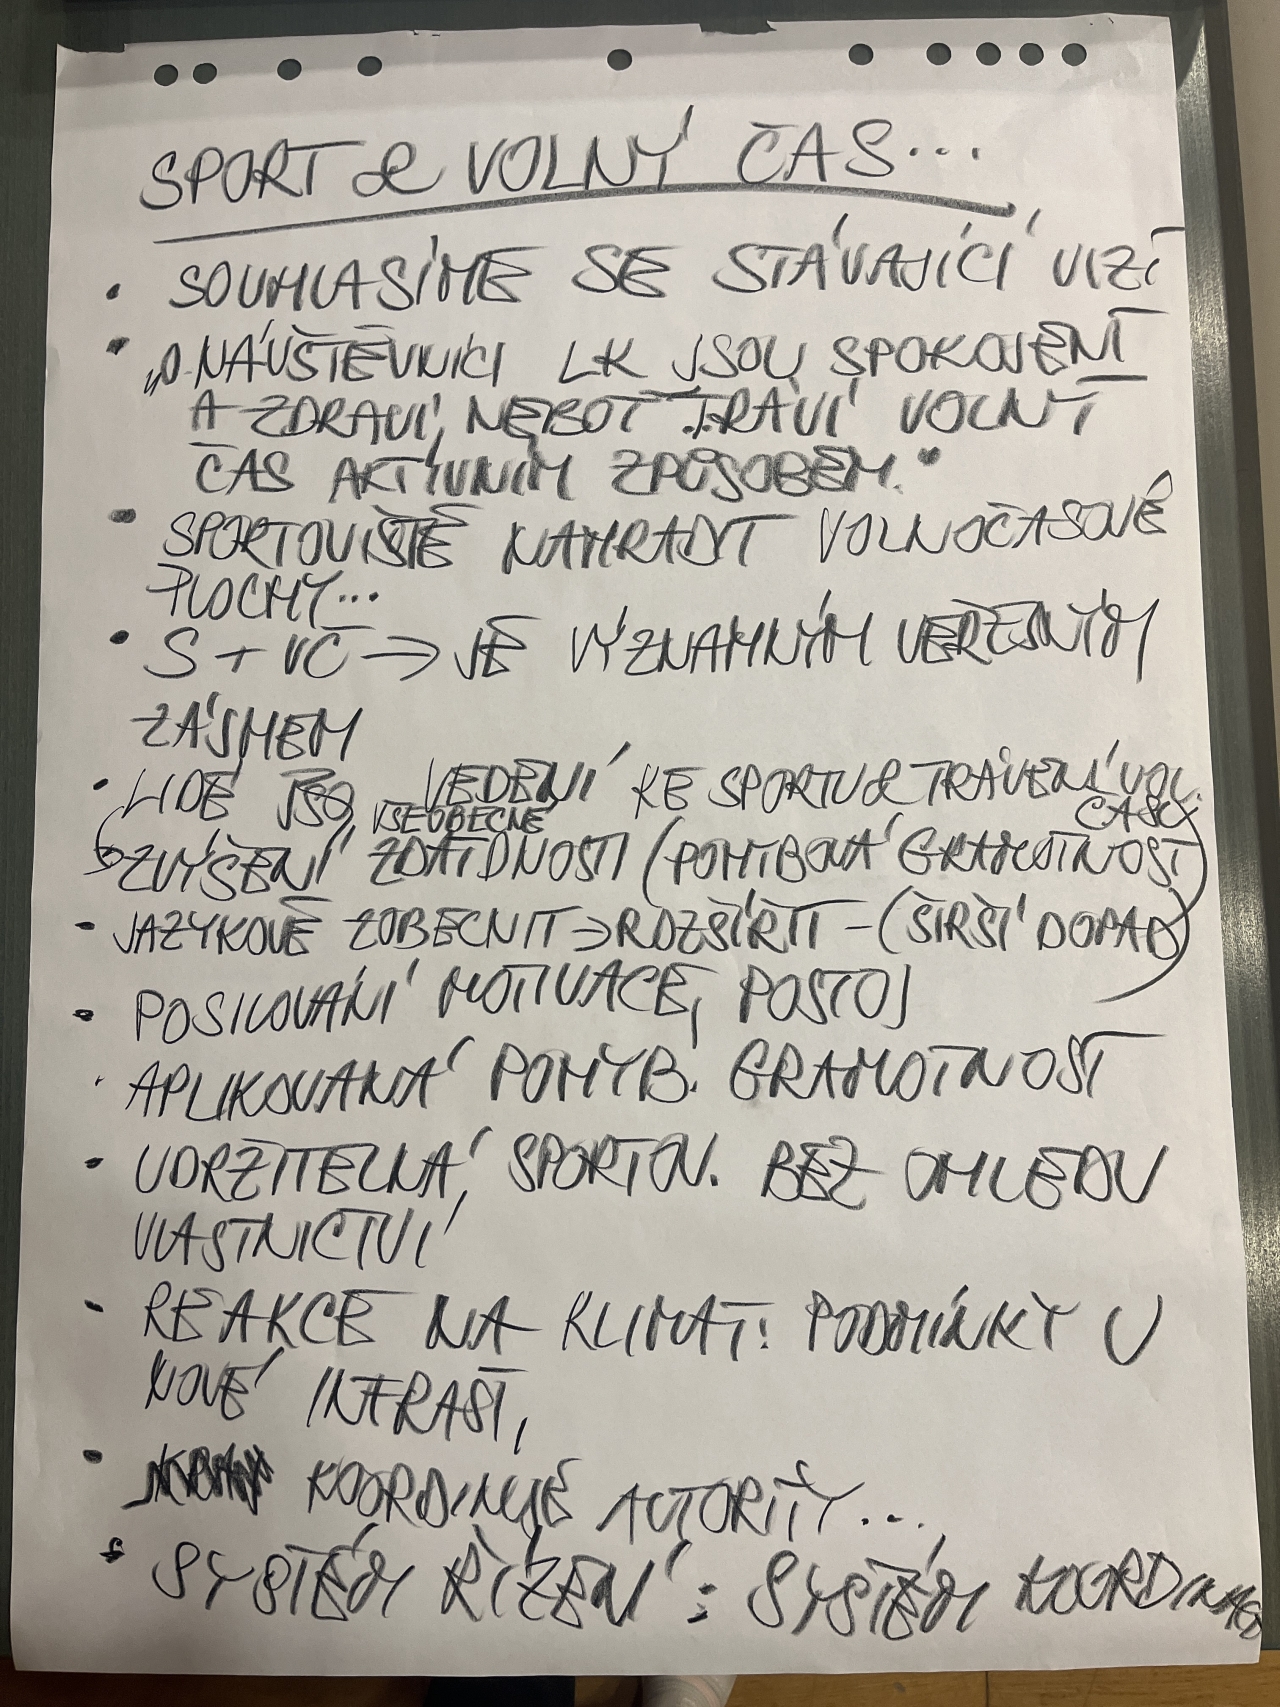 SPORT & VOLNÝ ČAS...
• SOUHLASÍME SE STÁVAJÍCÍ VIZÍ
• „O NÁVŠTĚVNÍCI LK JSOU SPOKOJENÍ
A ZDRAVÍ, NEBOŤ TRÁVÍ VOLNÝ
ČAS AKTIVNÍM ZPŮSOBEM."
• SPORTOVIŠTĚ NAHRADIT VOLNOČASOVÉ
PLOCHY...
• S + VČ → JE VÝZNAMNÝM VEŘEJNÝM
ZÁJMEM
• LIDÉ JSO VEDENI KE SPORTU & TRÁVENÍ VOL.
ČASU
VŠEOBECNÉ
ZVÝŠENÍ ZDATNOSTI (POHYBOVÁ GRAMOTNOST)
- JAZYKOVĚ ZOBECNIT → ROZŠÍŘIT - (ŠIRŠÍ DOPAD)
• POSILOVÁNÍ MOTIVACE, POSTOJ
• APLIKOVANÁ POHYB. GRAMOTNOST
• UDRŽITELNÁ, SPORTOV. BEZ OHLEDU
VLASTNICTVÍ
• REAKCE NA KLIMAT. PODMÍNKY U
NOVÉ INFRAST,
• KOORDINUJE AUTORITY...,
• SYSTÉM ŘÍZENÍ : SYSTÉM